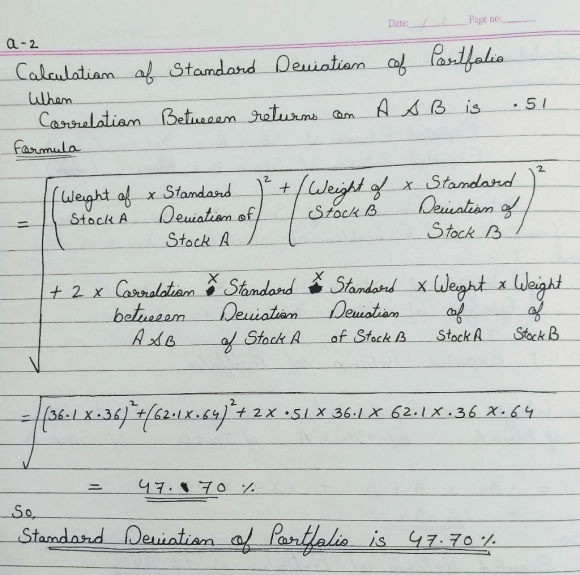 Date: / / Page no:
Q-2
Calculation of Standard Deviation of Portfolio
When
Correlation Between returns on A & B is .51
Formula
= √ (Weight of Stock A x Standard Deviation of Stock A)² + (Weight of Stock B x Standard Deviation of Stock B)²
+ 2 x Correlation between A & B x Standard Deviation of Stock A x Standard Deviation of Stock B x Weight of Stock A x Weight of Stock B
= √ (36.1 x .36)² + (62.1 x .64)² + 2 x .51 x 36.1 x 62.1 x .36 x .64
= 47.70 %
So,
Standard Deviation of Portfolio is 47.70 %